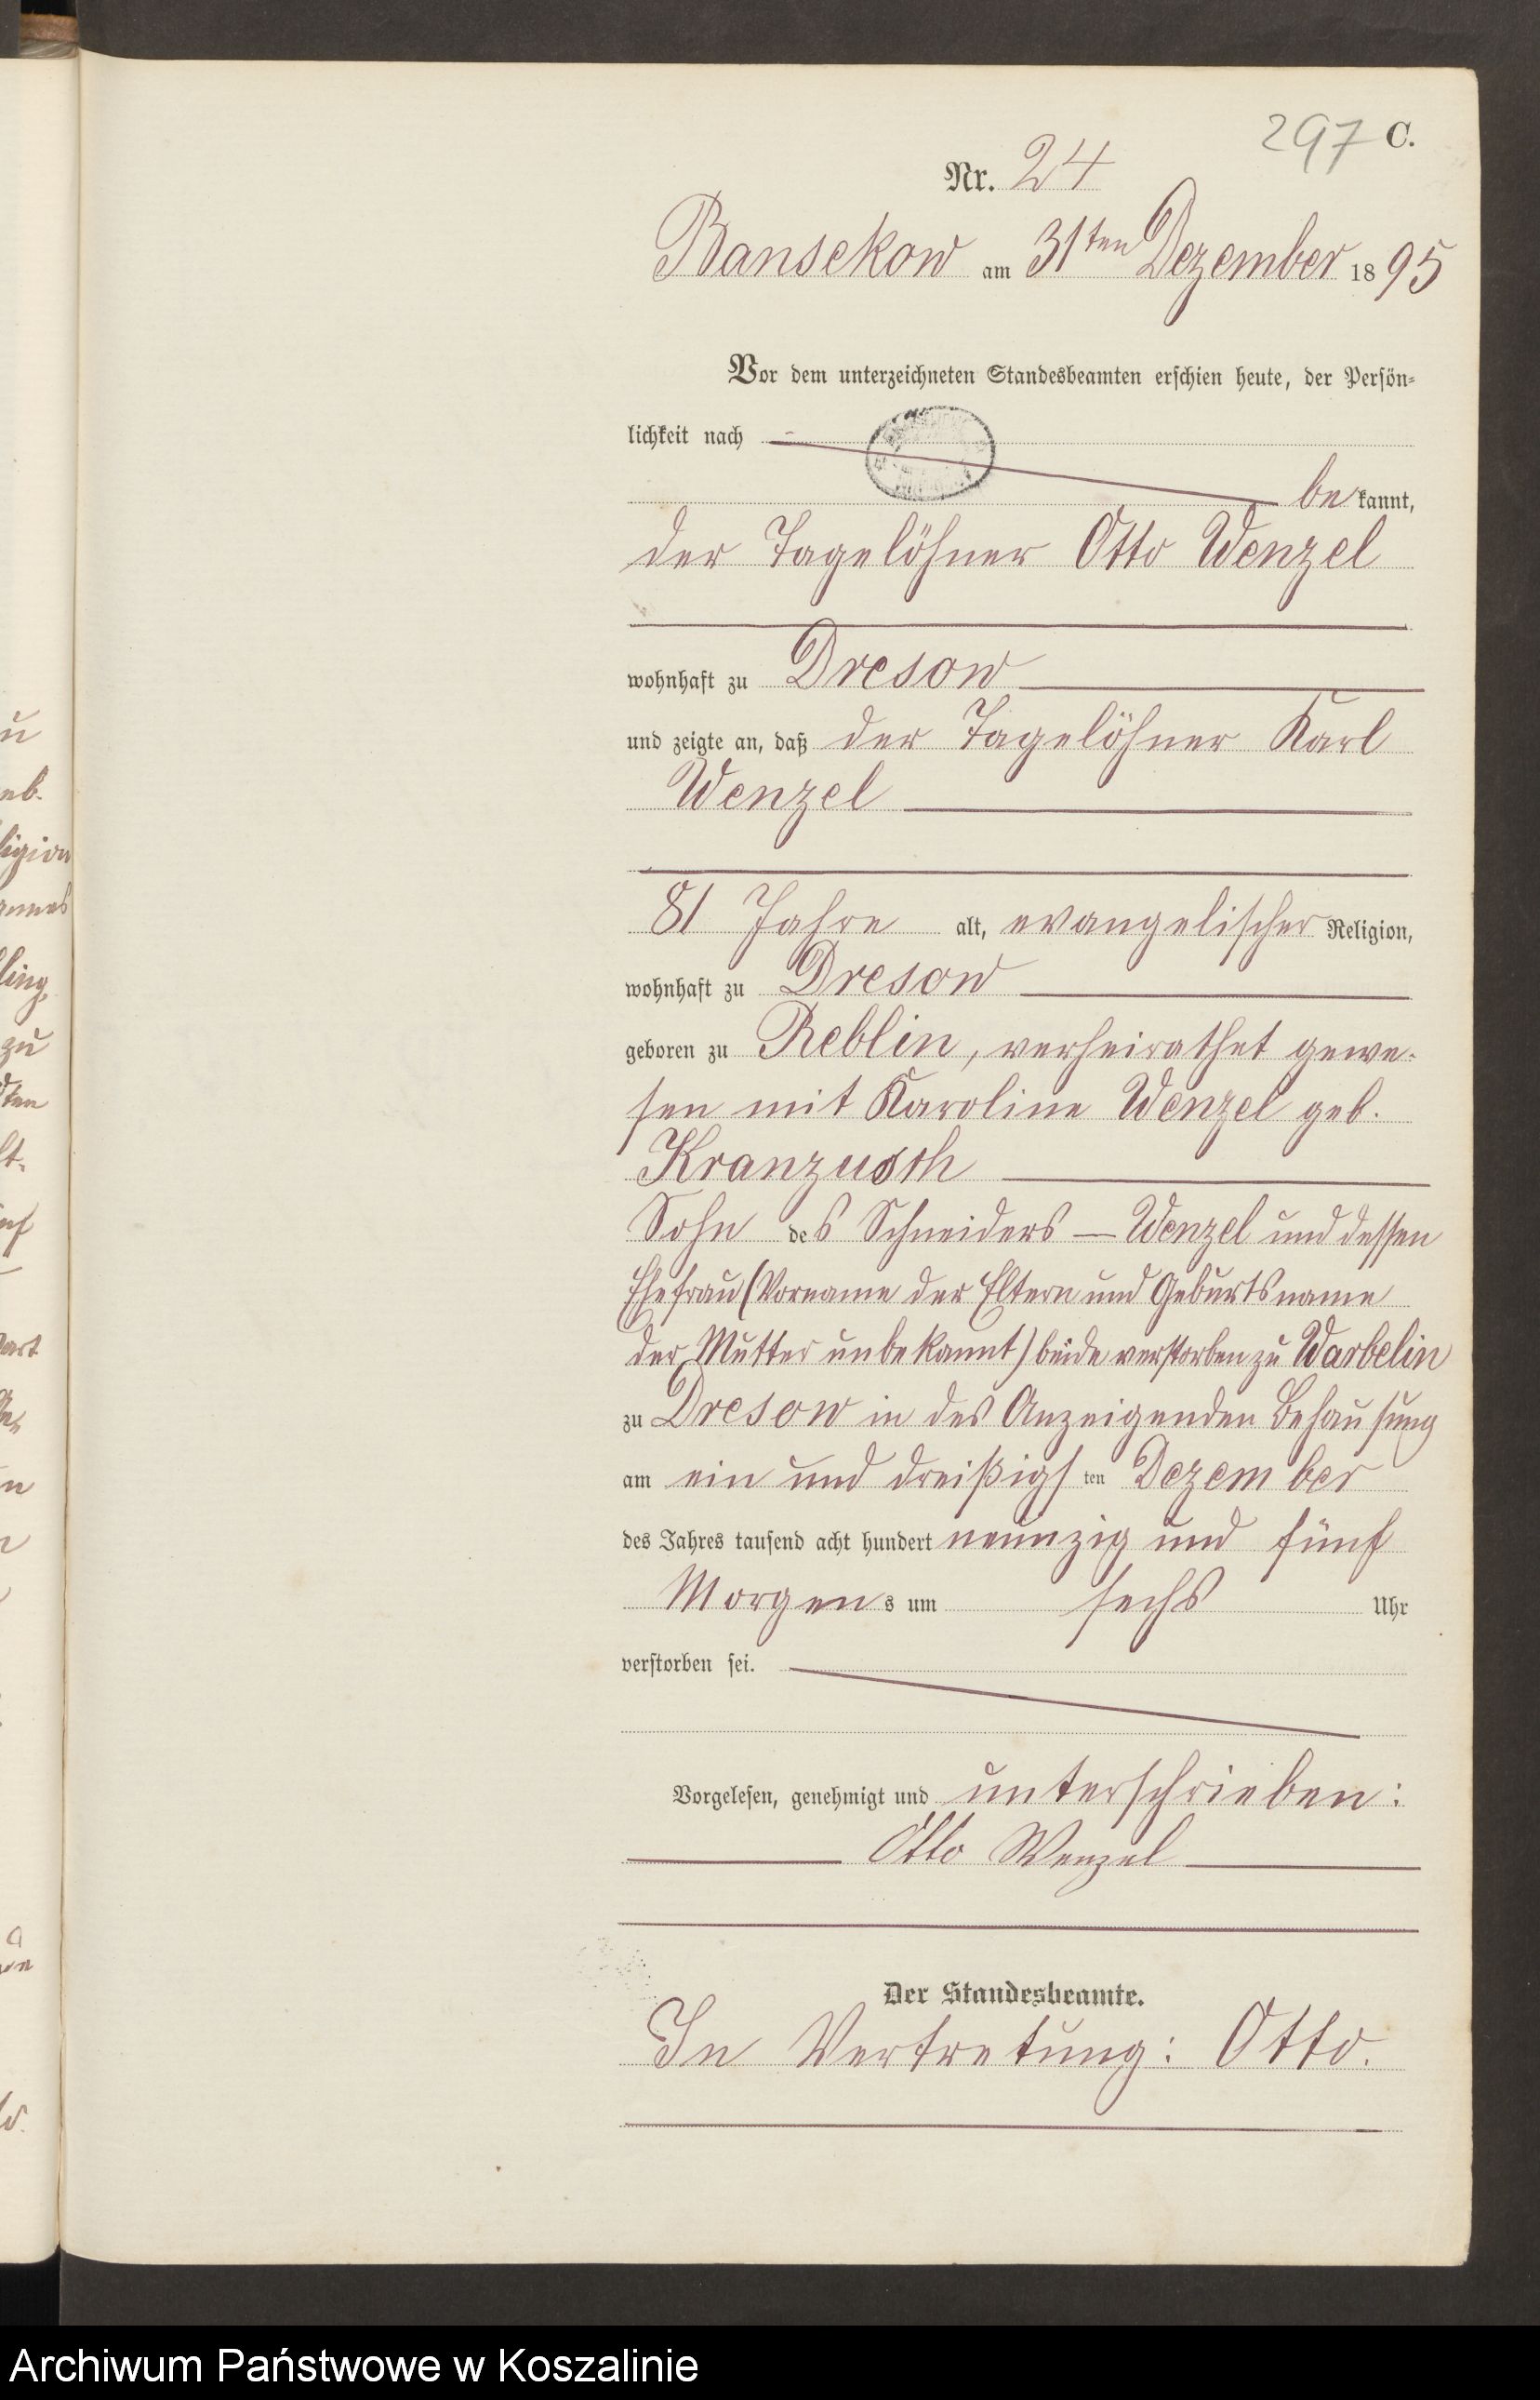 297 C.
Nr. 24
Bansekow am 31ten Dezember 1895
Vor dem unterzeichneten Standesbeamten erschien heute, der Persön-
lichkeit nach
bekannt,
der Tagelöhner Otto Wenzel
wohnhaft zu Dresow
und zeigte an, daß der Tagelöhner Karl
Wenzel
81 Jahre alt, evangelischer Religion,
wohnhaft zu Dresow
geboren zu Reblin, verheirathet gewe-
sen mit Karoline Wenzel geb.
Kranzusch
Sohn des Schneiders — Wenzel und dessen
Ehefrau (Vorname der Eltern und Geburtsname
der Mutter unbekannt) beide verstorben zu Warbelin
zu Dresow in des Anzeigenden Behausung
am ein und dreißigsten Dezember
des Jahres tausend acht hundert neunzig und fünf
Morgens um sechs Uhr
verstorben sei.
Vorgelesen, genehmigt und unterschrieben:
Otto Wenzel
Der Standesbeamte.
In Vertretung: Otto.
Archiwum Państwowe w Koszalinie